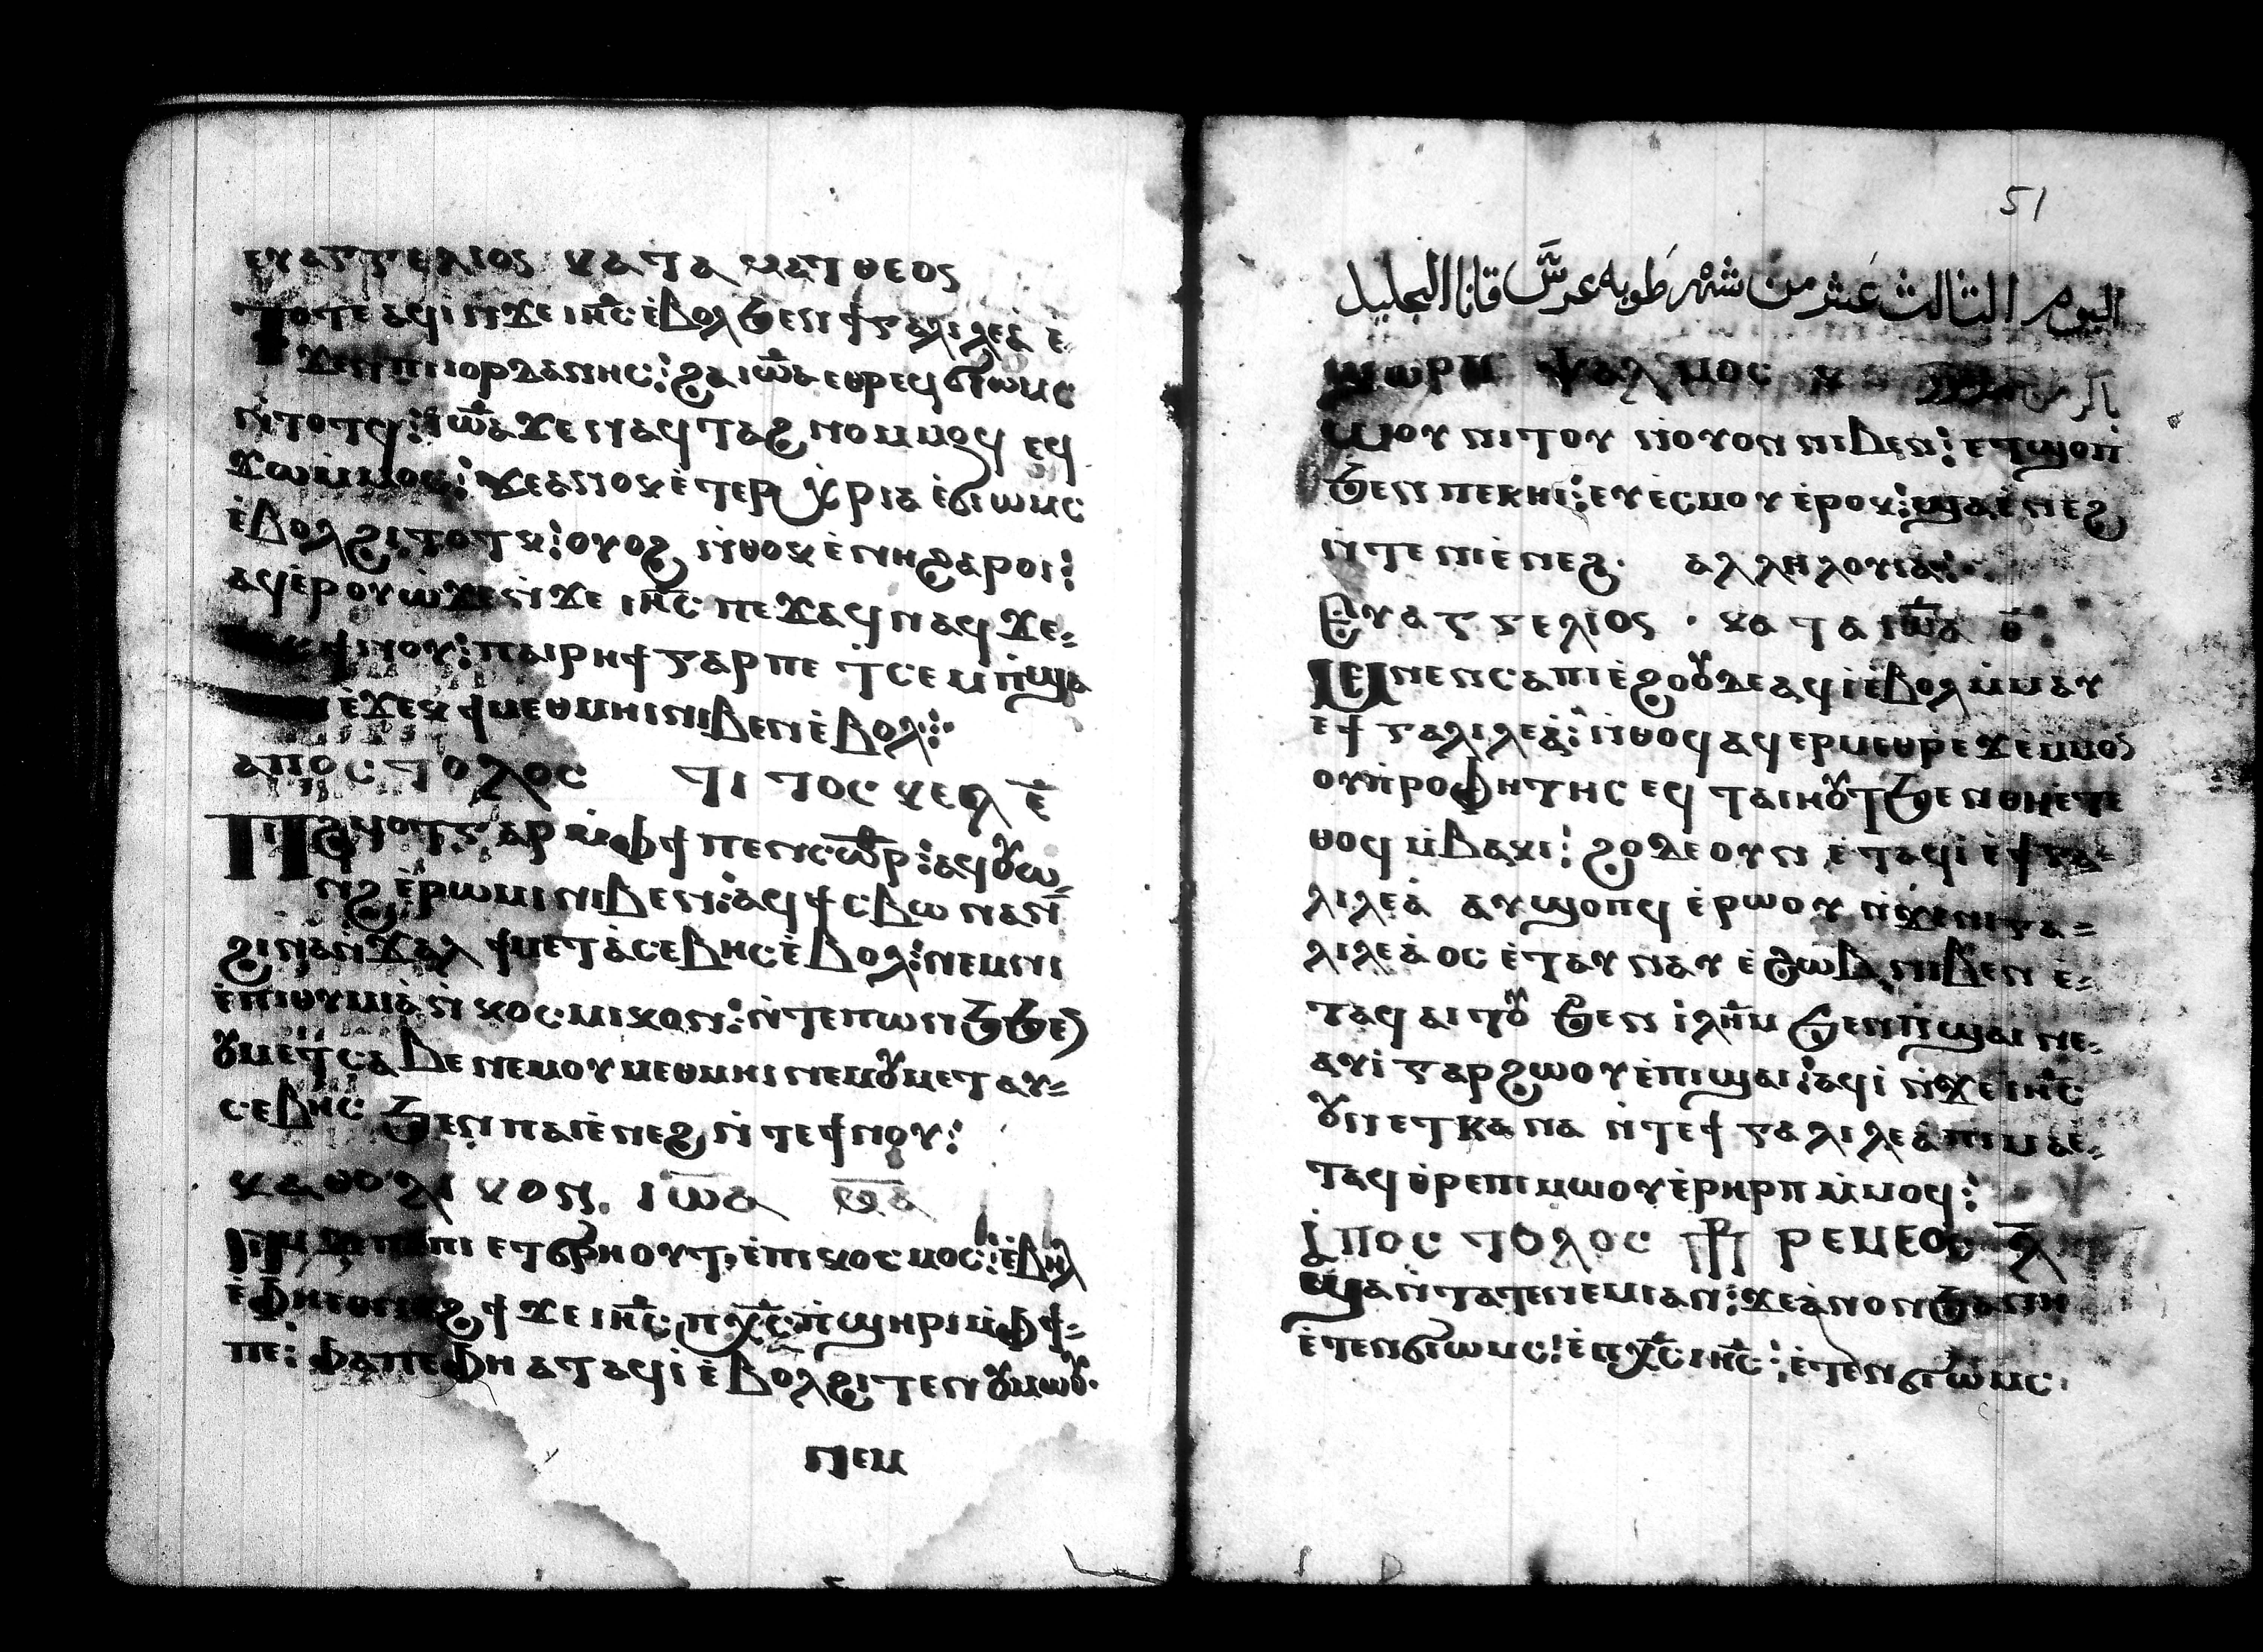 ⲉⲩⲁⲅⲅⲉⲗⲓⲟⲥ ⲕⲁⲧⲁ ⲙⲁⲧⲑⲉⲟⲥ
ⲧⲟⲧⲉ ⲁϥⲓ̀ⲛ̀ϫⲉ ⲓⲏ̅ⲥ̅ ⲉ̀ⲃⲟⲗϧⲉⲛϯⲅⲁⲗⲓⲗⲉⲁ̀ ⲉ̀⸗
ϫⲉⲛⲡⲓⲓⲟⲣⲇⲁⲛⲏⲥ: ϩⲁⲓⲱ̅ⲁ ⲉⲑⲣⲉϥϭⲓⲱⲙⲥ
ⲛ̀ⲧⲟⲧϥ: ⲓⲱ̅ⲁ ϫⲉ ⲛⲁϥⲧⲁϩⲛⲟⲙⲙⲟϥ ⲉϥ
ϫⲱⲙ̀ⲙⲟⲥ: ϫⲉⲁⲛⲟⲕ ⲉ̀ⲧⲉⲣ ⲭ̀ⲣⲓⲁ ⲉ̀ϭⲓⲱⲙⲥ
ⲉ̀ⲃⲟⲗϩⲓⲧⲟⲧⲕ: ⲟⲩⲟϩ ⲛ̀ⲑⲟⲕ ⲉ̀ⲛⲏϩⲁⲣⲟⲓ:
ⲁϥⲉ̀ⲣⲟⲩⲱ̀ ϫⲉⲛ̀ϫⲉ ⲓⲏ̅ⲥ̅ ⲡⲉϫⲁϥ ⲛⲁϥ ϫⲉ⸗
ϯⲛⲟⲩ: ⲡⲁⲓⲣⲏϯ ⲅⲁⲣ ⲡⲉ ⲧ̀ⲥⲉⲙⲡ̀ϣⲁ
ⲉ̀ϫⲉⲕ ϯⲙⲉⲑⲙⲏⲓⲛⲓⲃⲉⲛ ⲉ̀ⲃⲟⲗ:
ⲁⲡⲟⲥⲧⲟⲗⲟⲥ ⲧⲓⲧⲟⲥ ⲕⲉⲫ ⲉ̅
ⲡⲓϩⲙⲟⲧⲅⲁⲣ ⲙ̀ⲫϯ ⲡⲉⲛⲥⲱ̅ⲣ: ⲁϥⲟⲩⲱ⸗
ⲛϩ ⲉ̀ⲣⲱⲙⲓ ⲛⲓⲃⲉⲛ: ⲁϥϯⲥⲃⲱ ⲛⲁⲛ
ϩⲓⲛⲁⲛ̀ⲭⲁⲗ ϯⲙⲉⲧⲁⲥⲉⲃⲏⲥ ⲉ̀ⲃⲟⲗ: ⲛⲉⲙⲛⲓ
ⲉ̀ⲡⲓⲑⲩⲙⲓⲁ̀ ⲛ̀ⲕⲟⲥⲙⲓⲕⲟⲛ: ⲛ̀ⲧⲉⲛⲱⲛϧϧⲉⲛ
ⲟⲩⲙⲉⲧⲥⲁⲃⲉ ⲛⲉⲙⲟⲩⲙⲉⲑⲙⲏⲓ ⲛⲉⲙⲟⲩⲙⲉⲧⲁⲩ⸗
ⲥⲉⲃⲏⲥ ϧⲉⲛ ⲡⲁⲓⲉ̀ⲛⲉϩ ⲛ̀ⲧⲉϯⲛⲟⲩ:
ⲕⲁⲑⲟⲗⲓⲕⲟⲛ. ⲓⲱ̅ⲁ ⲫⲁ
ⲛⲓⲙ ⲡⲉⲧϭⲣⲏⲟⲩⲧ, ⲉ̀ⲡⲓⲕⲟⲥⲙⲟⲥ: ⲉ̀ⲃⲏⲗ
ⲉ̀ⲫⲏⲉⲑⲛⲁϩϯ ϫⲉ ⲓⲏ̅ⲥ̅ ⲡⲭ̅ⲥ̅ ⲡ̀ϣⲏⲣⲓ ⲙ̀ⲫϯ⸗
ⲡⲉ: ⲫⲁⲓⲡⲉ ⲫⲏ ⲁⲧⲁϥⲓ̀ ⲉ̀ⲃⲟⲗϩⲓⲧⲉⲛ ⲟⲩⲙⲱⲟⲩ·
ⲛⲉⲙ
51
اليوم الثالث عشر من شهر طوبه عرس قانا الجليل
ϣⲱⲣⲡ ⲯⲁⲗⲙⲟⲥ ⲕ باكر من مزمور
ⲱⲟⲩ ⲛⲓⲧⲟⲩ ⲛ̀ⲟⲩⲟⲛ ⲛⲓⲃⲉⲛ: ⲉⲧϣⲟⲡ
ϧⲉⲛ ⲡⲉⲕⲏⲓ: ⲉⲩⲉ̀ⲥⲙⲟⲩ ⲉ̀ⲣⲟⲕ: ϣⲁⲉ̀ⲛⲉϩ
ⲛ̀ⲧⲉ ⲡⲓⲉ̀ⲛⲉϩ· ⲁⲗⲗⲏⲗⲟⲩⲓⲁ:
ⲉⲩⲁⲅⲅⲉⲗⲓⲟⲥ · ⲕⲁⲧⲁ ⲓⲱ̅ⲁ ⲑ̅:
ⲙⲉⲛⲉⲛⲥⲁⲡⲓⲉ̀ϩⲟⲟⲩ ⲇⲉ ⲁϥⲓ̀ ⲉ̀ⲃⲟⲗ ⲙ̀ⲙⲁⲩ
ⲉϯⲅⲁⲗⲓⲗⲉⲁ̀: ⲛ̀ⲑⲟϥ ⲁϥⲉⲣⲙⲉⲑⲣⲉ ϫⲉⲙ̀ⲙⲟⲥ
ⲟⲩⲡ̀ⲣⲟⲫⲏⲧⲏⲥ ⲉϥⲧⲁⲓⲏⲟⲩⲧ ϧⲉⲛ ⲑⲏⲉⲧⲉ
ⲑⲟϥ ⲙ̀ⲃⲁⲕⲓ: ϩⲟϫⲉⲟⲩⲛ ⲉ̀ⲧⲁϥⲓ̀ ⲉ̀ϯⲅⲁ⸗
ⲗⲓⲗⲉⲁ̀ ⲁⲩϣⲟⲡϥ ⲉ̀ⲣⲱⲟⲩ ⲛ̀ϫⲉⲛⲓⲅⲁ⸗
ⲗⲓⲗⲉⲁ̀ⲟⲥ ⲉ̀ⲧⲁⲩⲛⲁⲩ ⲉ̀ϩⲱⲃ ⲛⲓⲃⲉⲛ ⲉ̀⸗
ⲧⲁϥⲁⲓⲧⲟⲩ ϧⲉⲛ ⲓ̀ⲗⲏ̅ⲙ ϧⲉⲛⲡ̀ϣⲁⲓ ⲛⲉ⸗
ⲁⲩⲓ̀ ⲅⲁⲣ ϩⲱⲟⲩ ⲉ̀ⲡⲓϣⲁⲓ: ⲁϥⲓ̀ ⲛ̀ϫⲉ ⲓⲏ̅ⲥ̅
ⲟⲩⲛ ⲉⲧⲕⲁⲛⲁ ⲛ̀ⲧⲉϯⲅⲁⲗⲓⲗⲉⲁ̀ ⲡⲓⲙⲁⲉ̀⸗
ⲧⲁϥⲑ̀ⲣⲉⲡⲓⲙⲱⲟⲩ ⲉ̀ⲣⲏⲣⲡ ⲙ̀ⲙⲟϥ:
ⲁⲡⲟⲥⲧⲟⲗⲟⲥ ⲣⲉⲙⲉⲟⲥ ⲗ̅
ϣⲁⲛ̀ⲧⲁⲧⲉⲛⲉⲙⲓⲁⲛ: ϫⲉⲁ̀ⲛⲟⲛ ϧⲁⲛⲏ
ⲉ̀ⲧⲉⲛϭⲓⲱⲙⲥ: ⲉ̀ⲡⲭ̅ⲥ̅ ⲓⲏ̅ⲥ̅: ⲉ̀ⲧⲉⲛϭⲓⲱⲙⲥ·